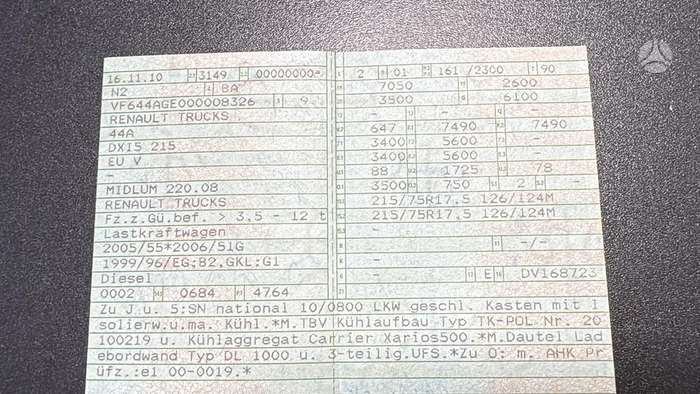 16.11.10 3149 00000000-
N2 BA
VF644AGE000008326 9
RENAULT TRUCKS
44A
DXI5 215
EU V
-
MIDLUM 220.08
RENAULT TRUCKS
Fz.z.Gü.bef. > 3,5 - 12 t
Lastkraftwagen
2005/55*2006/51G
1999/96/EG;B2,GKL:G1
Diesel
0002 0684 4764
2 01 161 /2300 90
7050 2600
3500 6100
- - -
647 7490 7490
3400 5600 -
3400 5600 -
88 1725 78
3500 750 2 -
215/75R17,5 126/124M
215/75R17,5 126/124M
-
- -/-
-
- E DV168723
Zu J u. 5:SN national 10/0800 LKW geschl. Kasten mit I
solierw.u.ma. Kühl.*M.TBV Kühlaufbau Typ TK-POL Nr. 20
100219 u. Kühlaggregat Carrier Xarios500.*M.Dautel Lad
ebordwand Typ DL 1000 u. 3-teilig.UFS.*Zu O: m. AHK Pr
üfz.:e1 00-0019.*